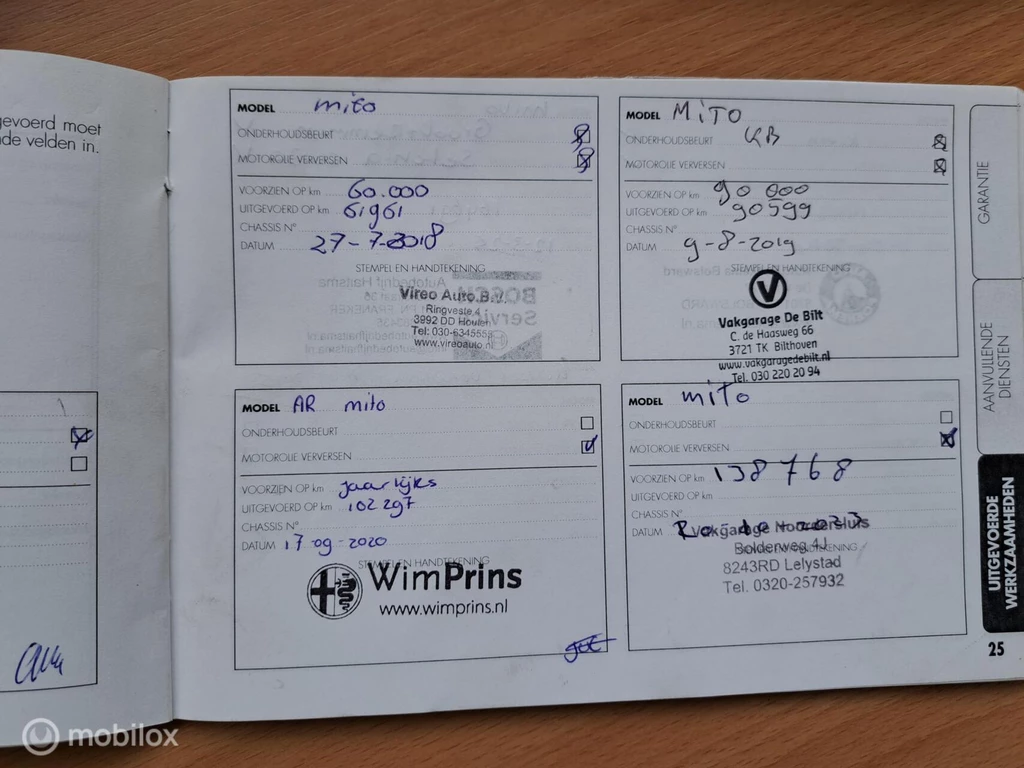 gevoerd moet
de velden in.
MODEL mito
ONDERHOUDSBEURT
MOTOROLIE VERVERSEN
VOORZIEN OP km 60.000
UITGEVOERD OP km 61961
CHASSIS N°
DATUM 27-7-2018
STEMPEL EN HANDTEKENING
Vireo Auto B.V.
Ringveste 4
3992 DD Houten
Tel: 030-6345558
www.vireoauto.nl
MODEL MiTO
ONDERHOUDSBEURT KB
MOTOROLIE VERVERSEN
VOORZIEN OP km 90 000
UITGEVOERD OP km 90599
CHASSIS N°
DATUM 9-8-2019
STEMPEL EN HANDTEKENING
Vakgarage De Bilt
C. de Haasweg 66
3721 TK Bilthoven
www.vakgaragedebilt.nl
Tel. 030 220 20 94
MODEL AR mito
ONDERHOUDSBEURT
MOTOROLIE VERVERSEN
VOORZIEN OP km jaarlijks
UITGEVOERD OP km 102297
CHASSIS N°
DATUM 17-09-2020
STEMPEL EN HANDTEKENING
WimPrins
www.wimprins.nl
MODEL mito
ONDERHOUDSBEURT
MOTOROLIE VERVERSEN
VOORZIEN OP km 138768
UITGEVOERD OP km
CHASSIS N°
DATUM
Vakgarage Noordersluis
Bolderweg 4J
HANDTEKENING
8243RD Lelystad
Tel. 0320-257932
GARANTIE
AANVULLENDE
DIENSTEN
UITGEVOERDE
WERKZAAMHEDEN
25
mobilox